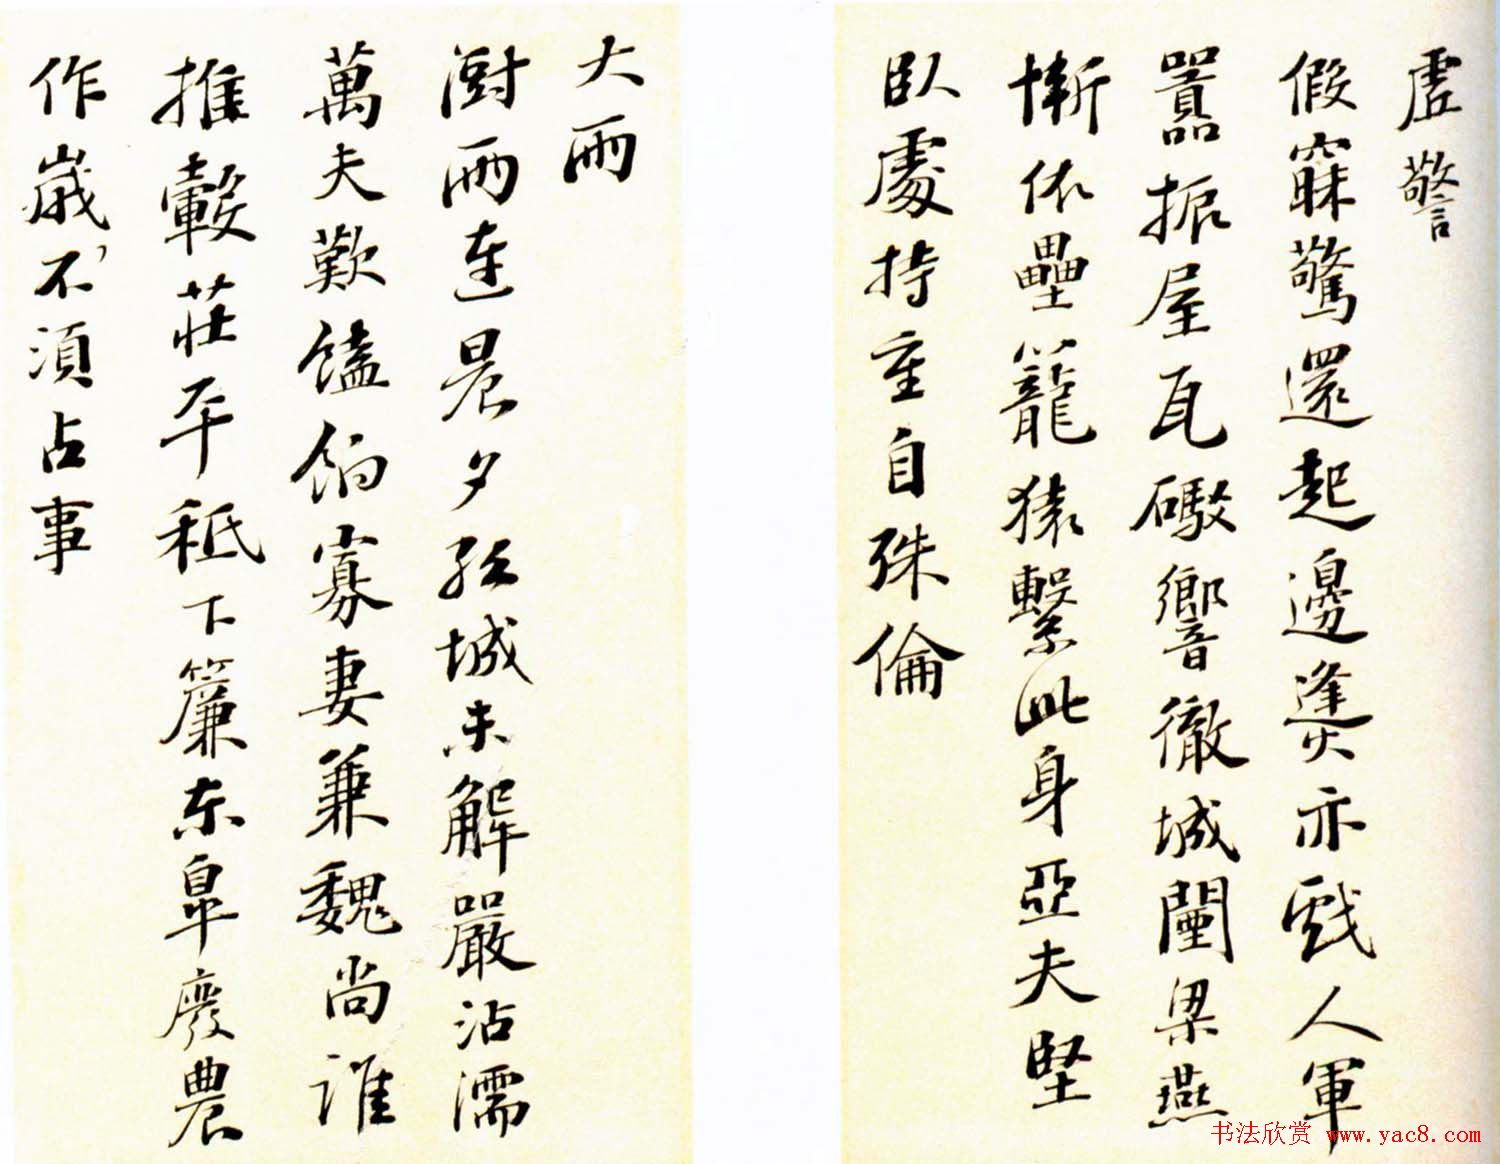 虛警
假寐驚還起邊烽火亦戲人軍
囂振屋瓦礮響徹城闉梁燕
慚依壘籠猿繫此身亞夫堅
臥處持重自殊倫
大雨
澍雨連晨夕孤城未解嚴沾濡
萬夫歎饁餉寡妻兼魏尚誰
推轂莊平秪下簾東皋廢農
作歲不須占事
书法欣赏 www.yac8.com